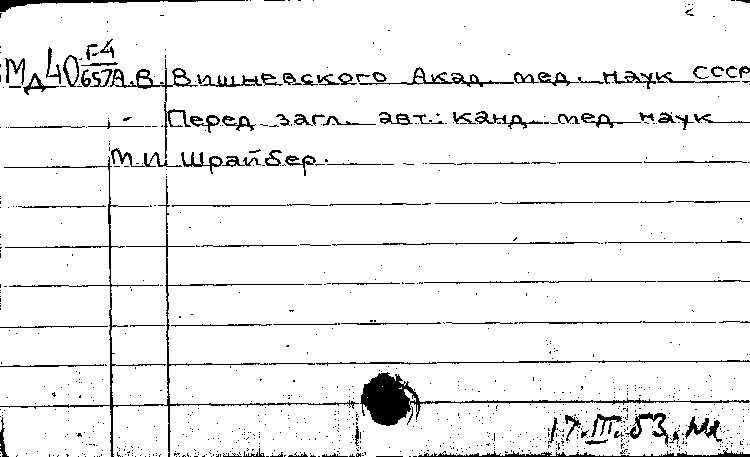 2
Мд40 Г-4
657 А.В. Вишневского Акад. мед. наук СССР
- Перед загл. авт.: канд. мед. наук
М.И. Шрайбер.
17.III.53.